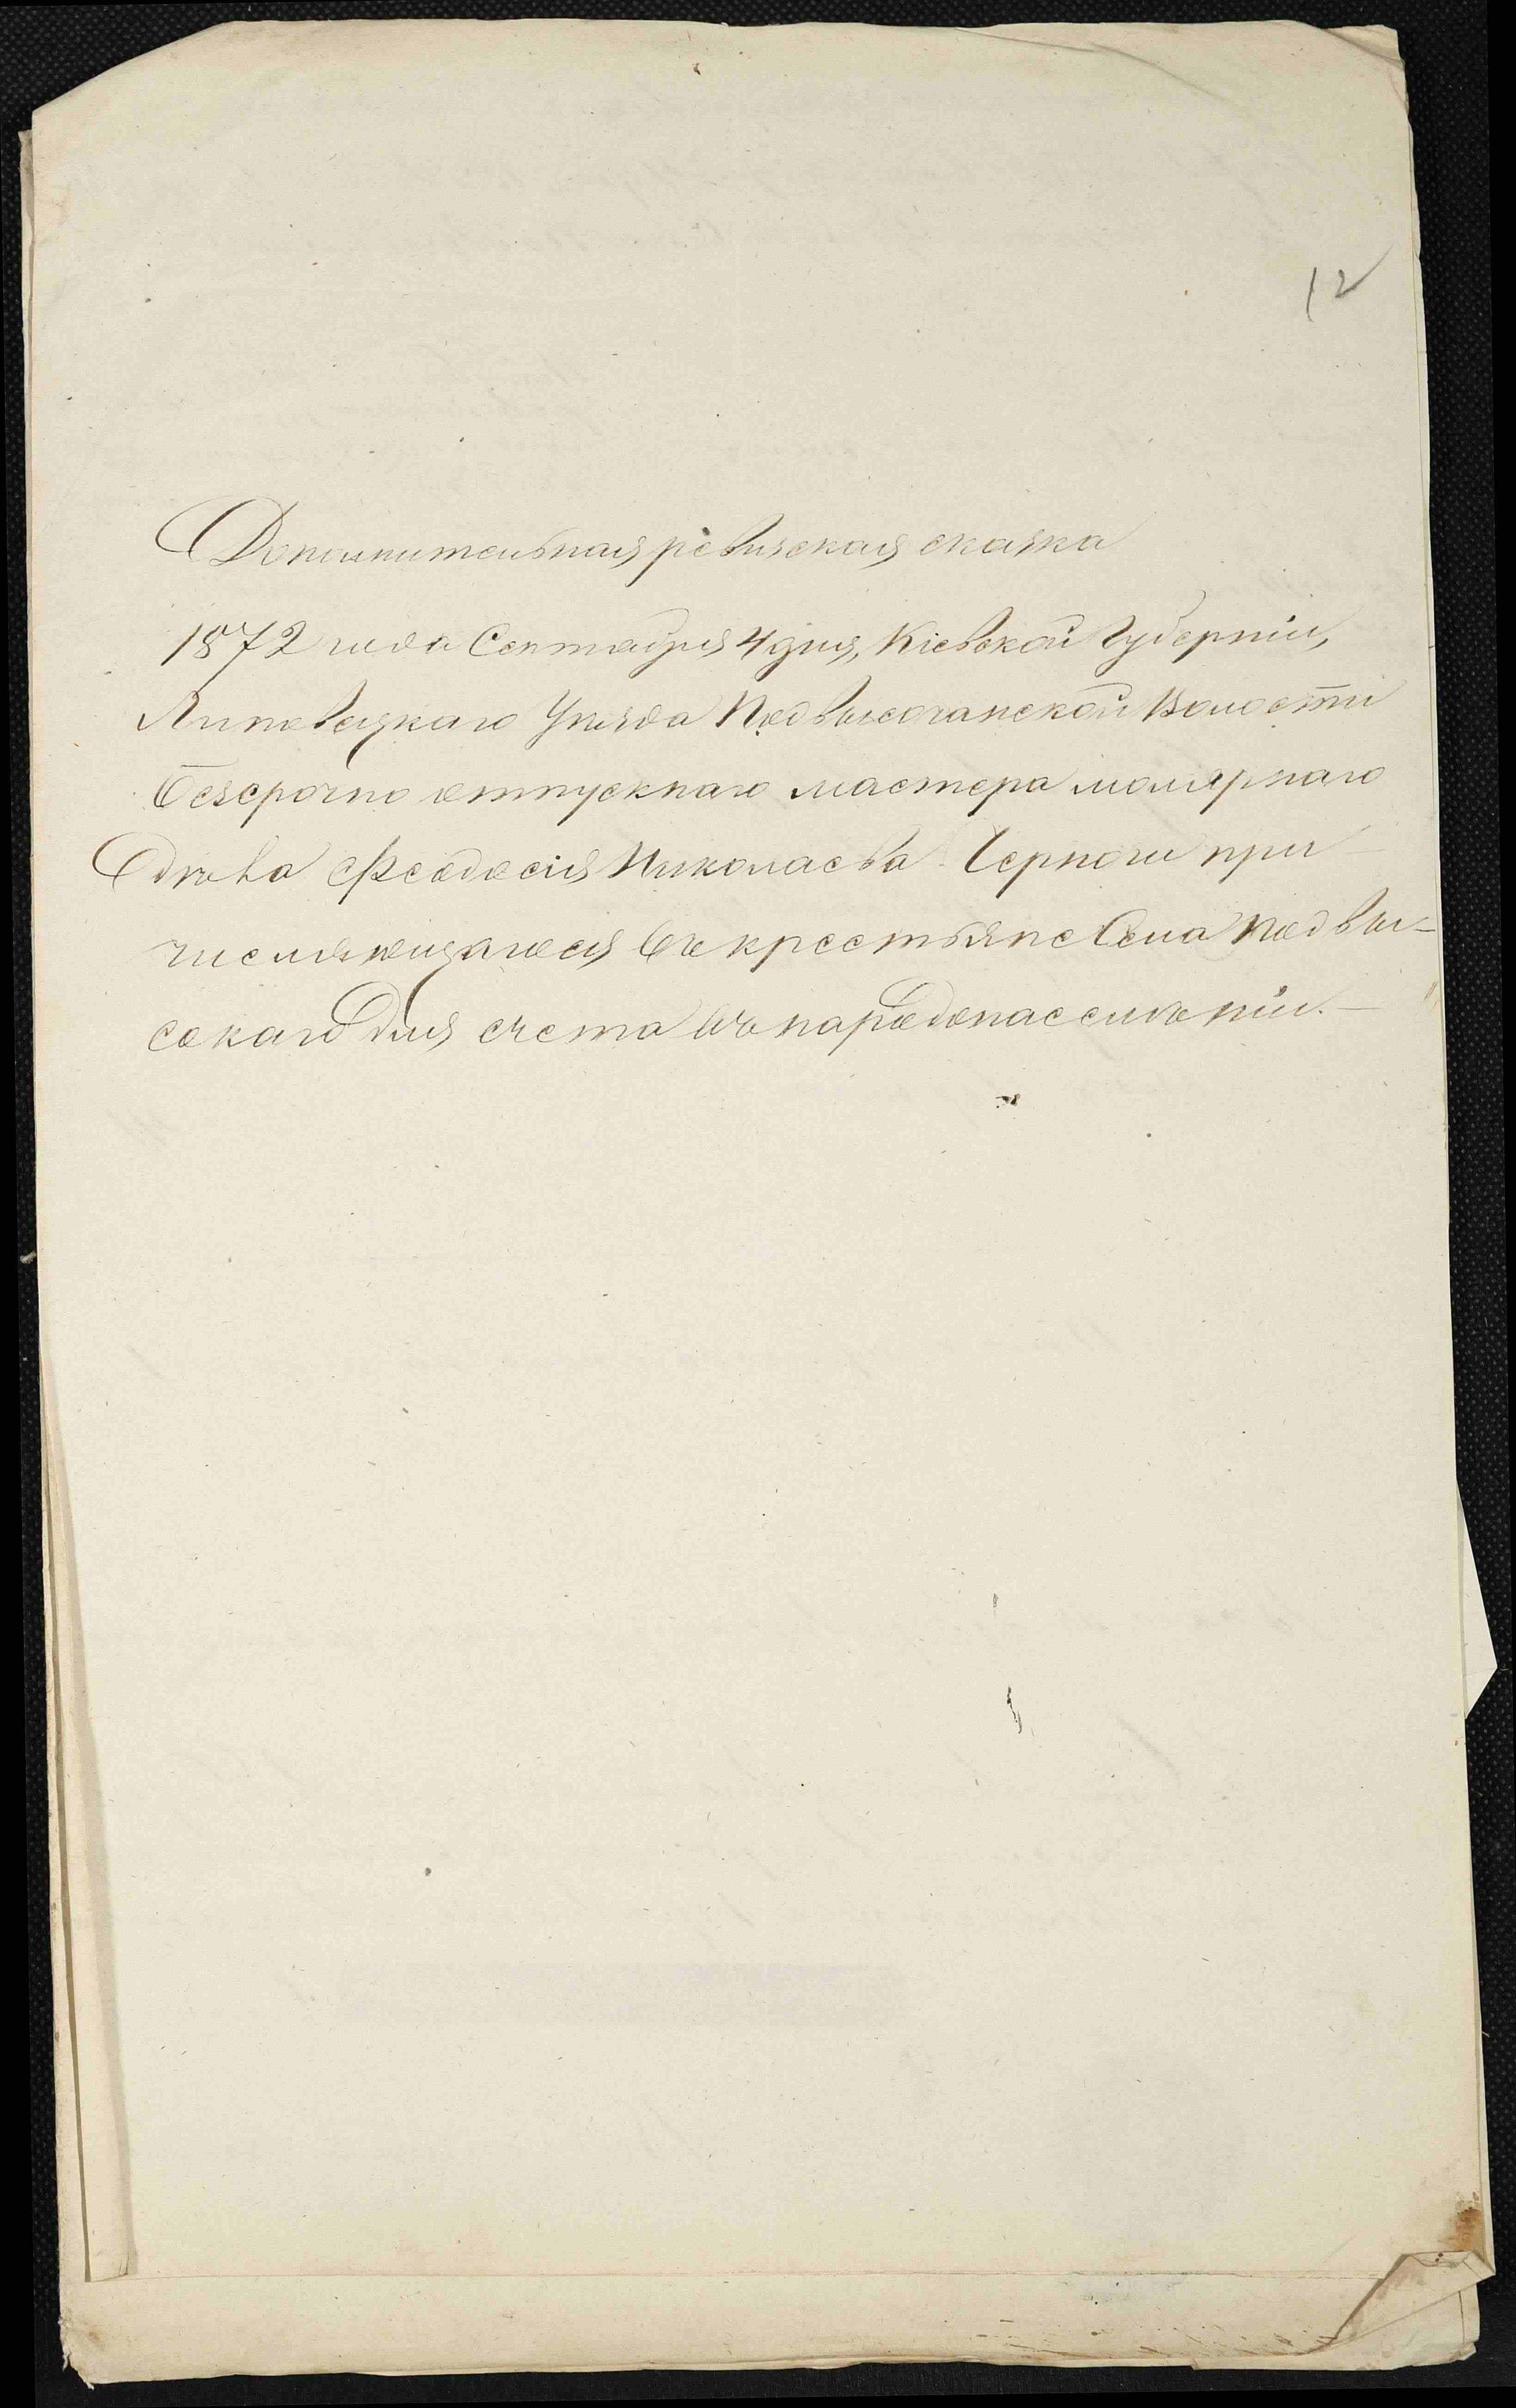 12
Дополнительная ревизская сказка
1872 года Сентября 4 дня, Кіевской Губерніи,
Липовецкаго Уѣзда Подвысочанской Волости
безсрочно отпускнаго мастера молярнаго
Федосія Николаева Чернаго при
числяющагося въ крестьяне Села Подвы-
сокаго для счета въ народонаселеніи.